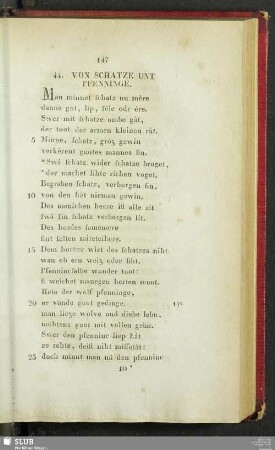 147
44. VON SCHATZE UNT
PFENNINGE.
Men minnet ſchatz nu mêre
danne got, lip, ſêle odr êre.
Swer mit ſchatze umbe gât,
der tuot der armen kleinen rât.
5 Minne, ſchatz, grôz gewin
verkêrent guotes mannes ſin.
*Swâ ſchatz wider ſchatze
*der machet ſihte
Begraben ſchatz, verborgen ſin,
10 von den hât nieman gewin.
Des menſchen herze iſt alle zit
ſwâ ſin ſchatz verborgen lît.
Des hordes
ſint ſelten miteteilere.
15 Dem horter wirt des ſchatzes niht
wan ob ern weiz oder ſiht.
Pfenninc wunder tuot:
ſi weichet manegen herten muot.
Hete der wolf pfenninge,
20 er vünde guot gedinge.
man lieze wolve und diebe lebn,
möhtens guot mit vollen gebn.
Swer den pfenninc liep hât
ze rehte, deiſt niht miſſetât:
25 doch minnt man nû den pfenninc
10 *
SLUB